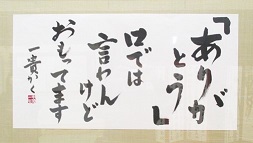 「ありが
とう」
口では
言わん
けど
おもってます
一貴かく